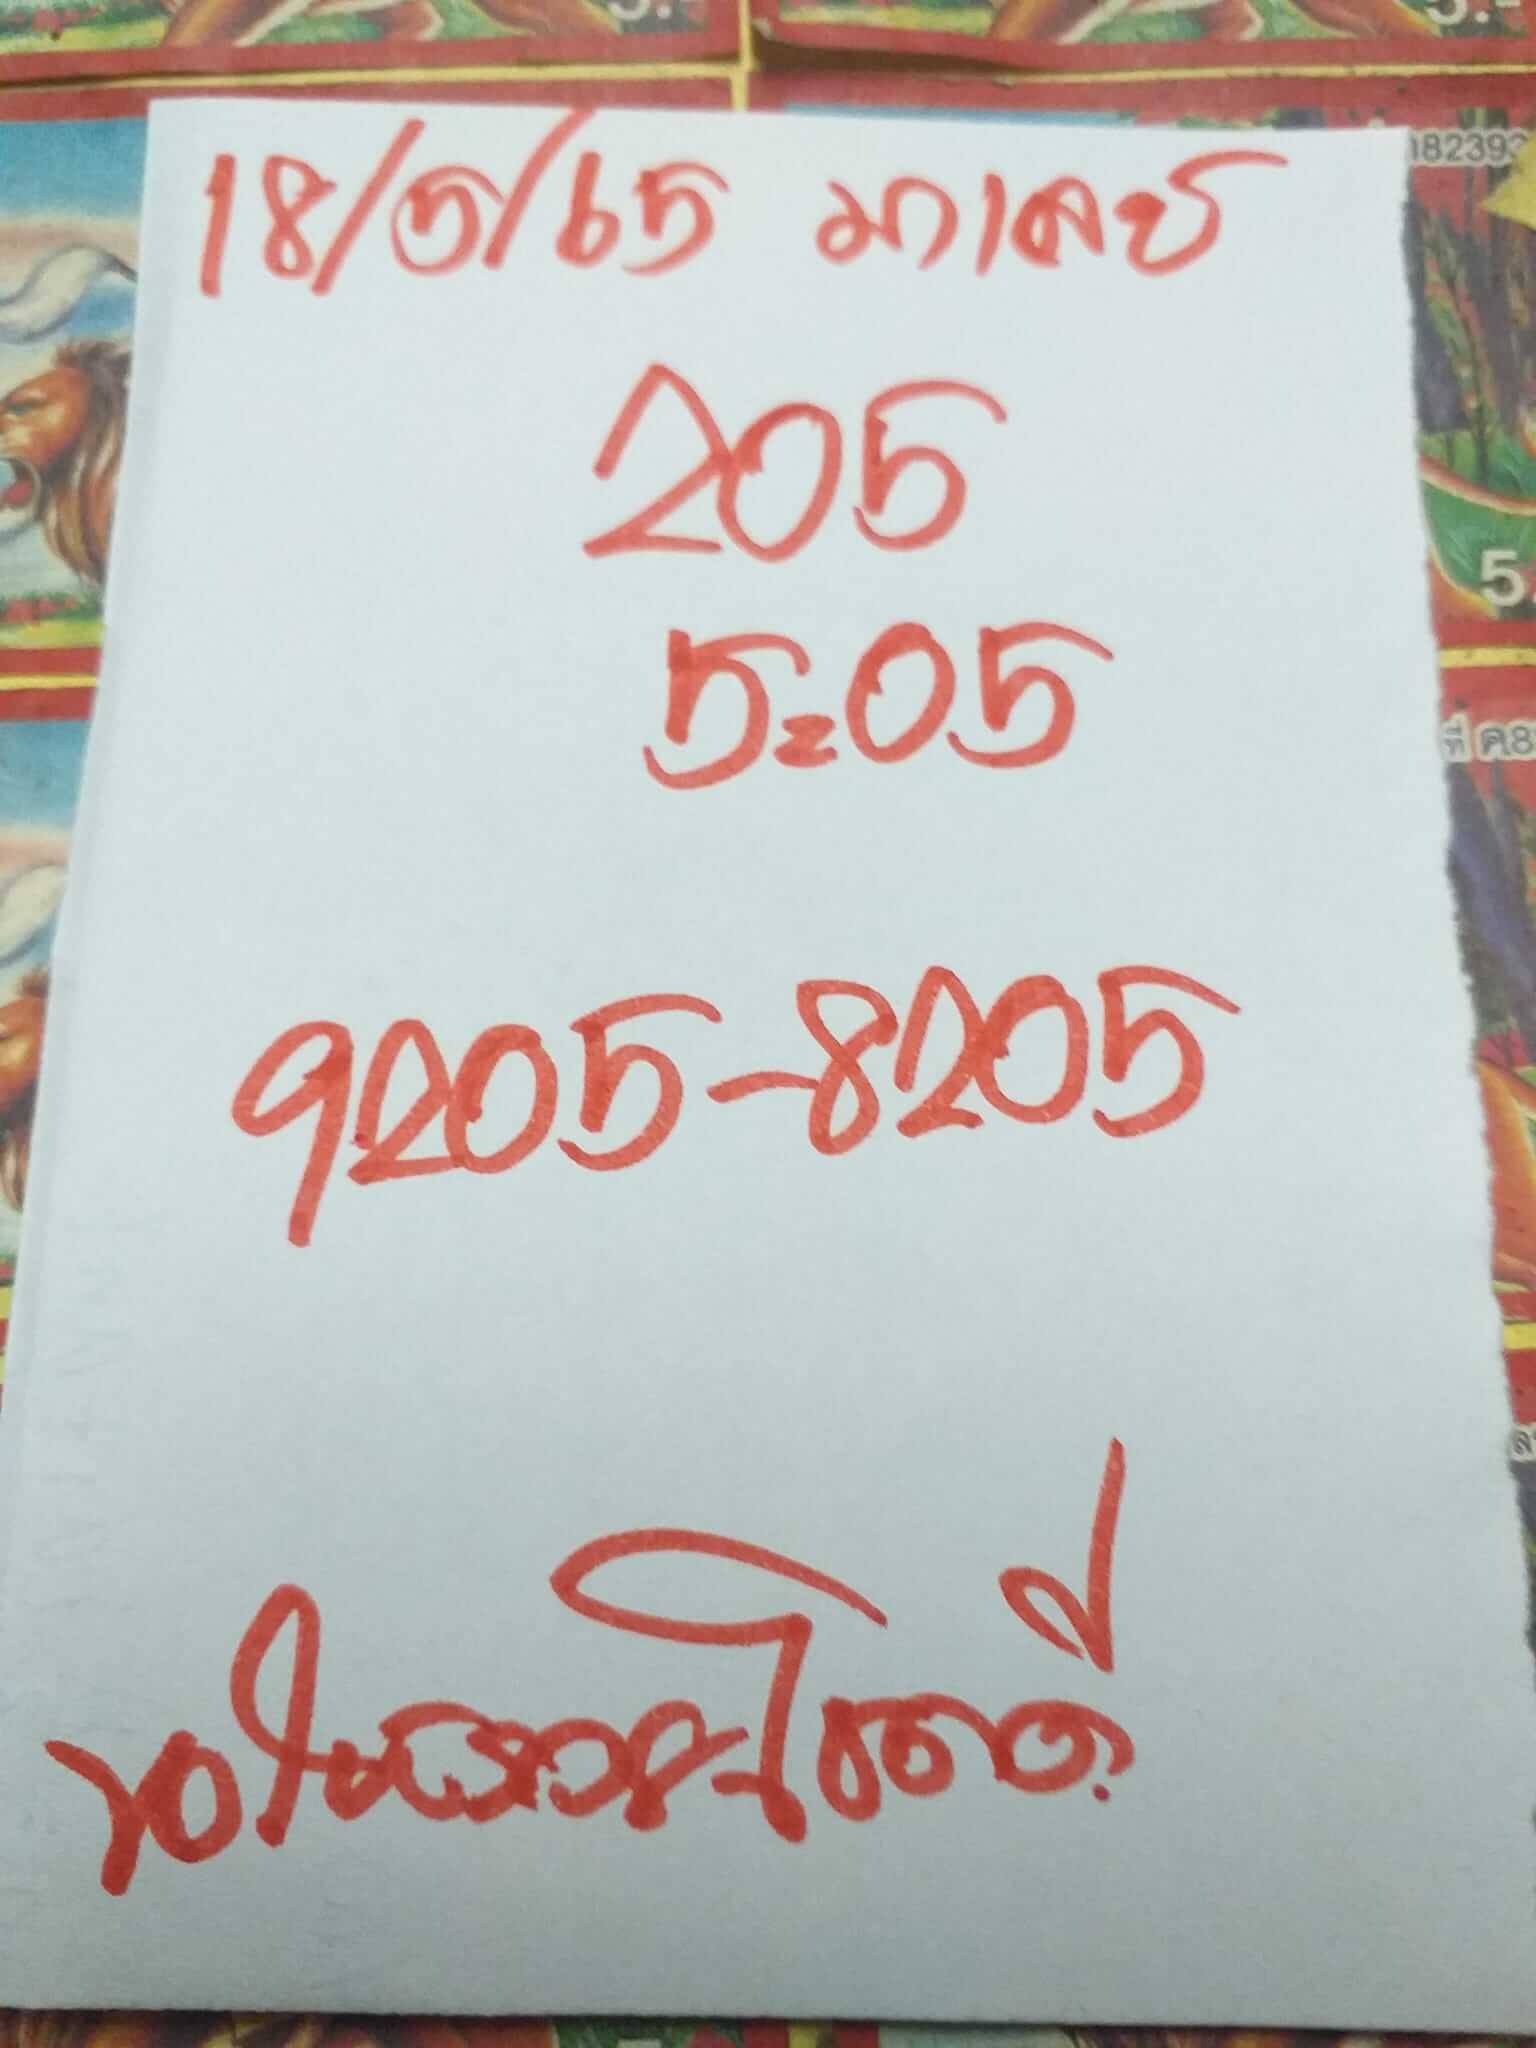 5.-
5.-
18/5/65 มาเลย์
205
5=05
9205-8205
ขอให้ โชคดี
ที่ ค.8